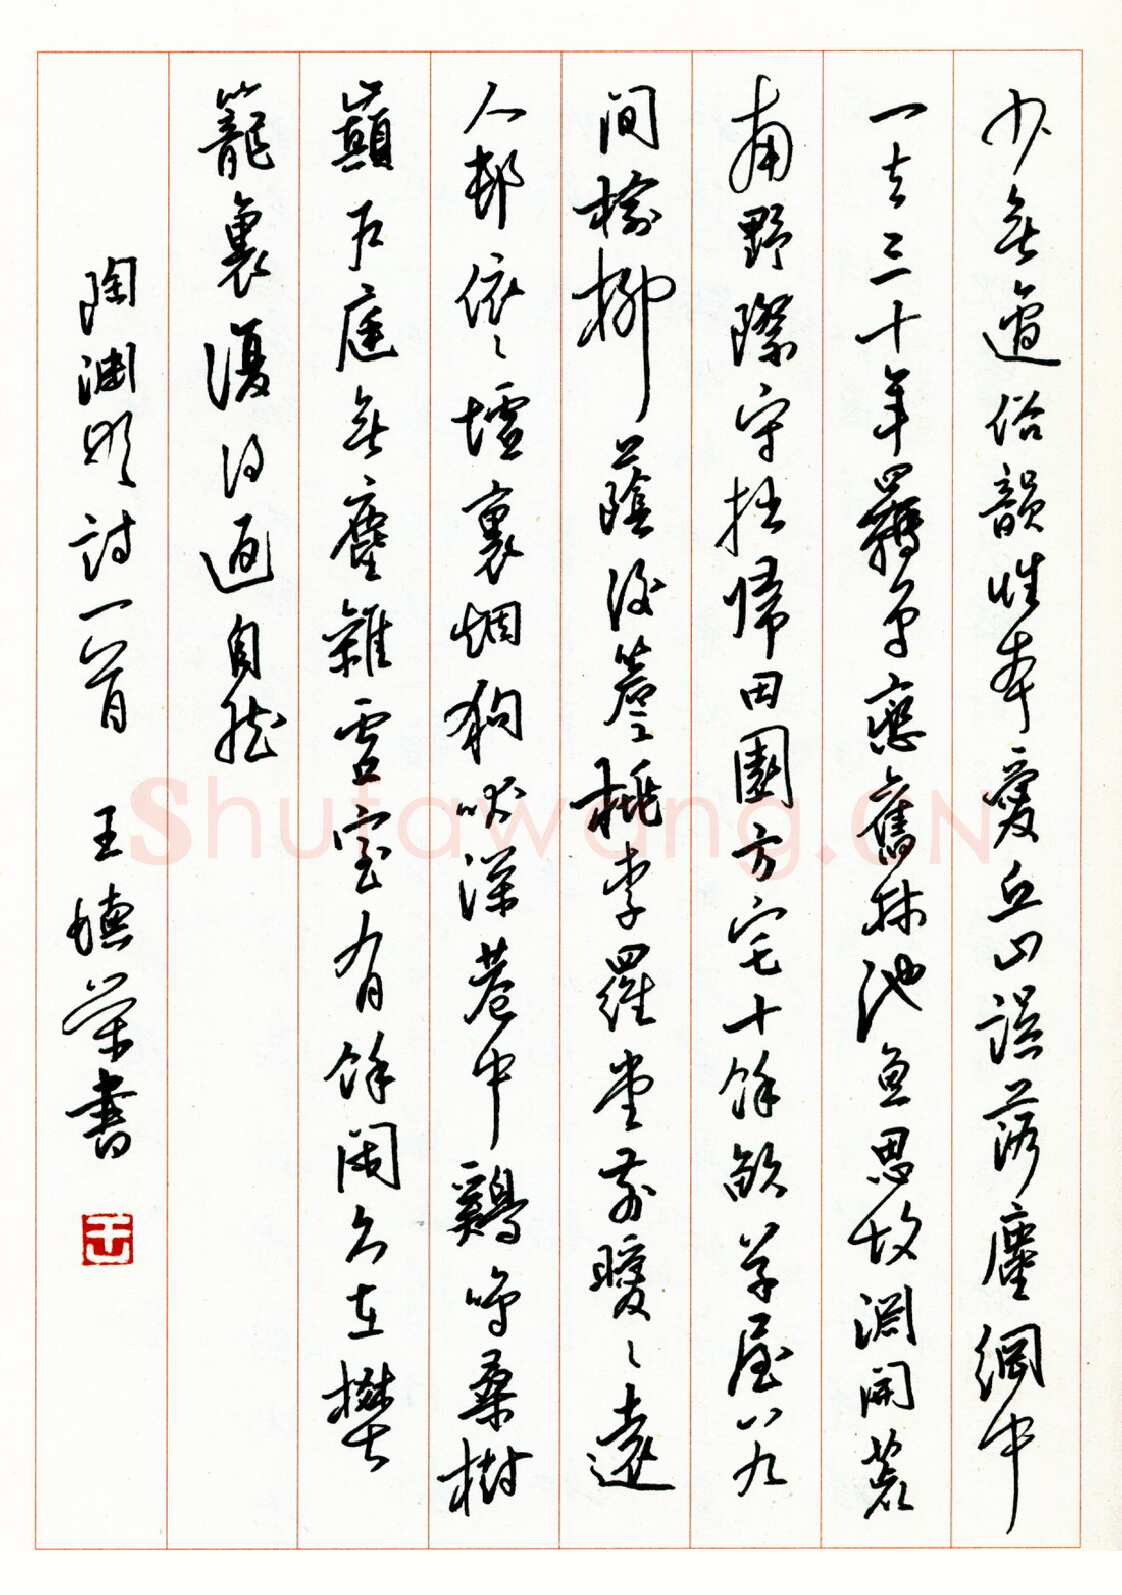 少無適俗韻性本愛丘山誤落塵網中
一去三十年羈鳥戀舊林池魚思故淵開荒
南野際守拙歸田園方宅十餘畝草屋八九
間榆柳蔭後簷桃李羅堂前曖〻遠
人邨依〻墟裏烟狗吠深巷中鷄鳴桑樹
巔戶庭無塵雜虛室有餘閑久在樊
籠裏復得返自然
陶淵明詩一首 王榮書
王
Shufawang.CN